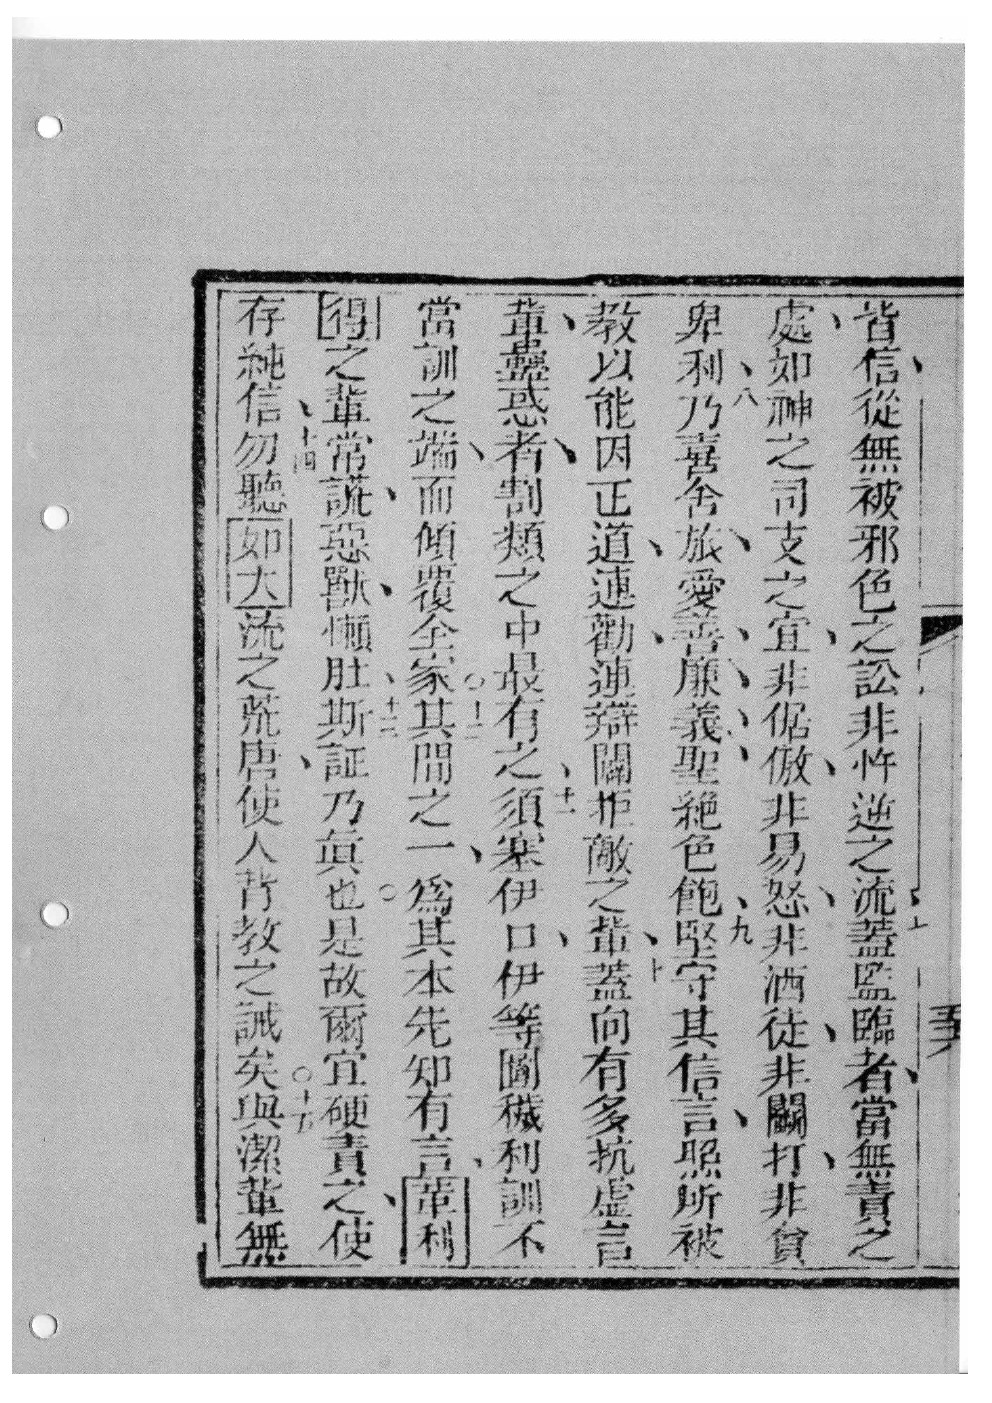 皆信從無被邪色之訟非忤逆之流七蓋監臨者當無責之
處如神之司支之宜非倨傲非易怒非酒徒非鬬打非貧
卑利八乃喜舍旅愛善廉義聖絶色飽九堅守其信言照所被
教以能因正道連勸連辯闢拒敵之輩十蓋向有多抗虛言
輩蠱惑者割類之中最有之十一須塞伊口伊等圖穢利訓不
當訓之端而傾覆全家○十二其間之一爲其本先知有言葦利
得之輩常謊惡獸懶肚十三斯証乃眞也○是故爾宜硬責之使
存純信十四勿聽如大流之荒唐使人背教之誡矣○十五與潔輩無
五